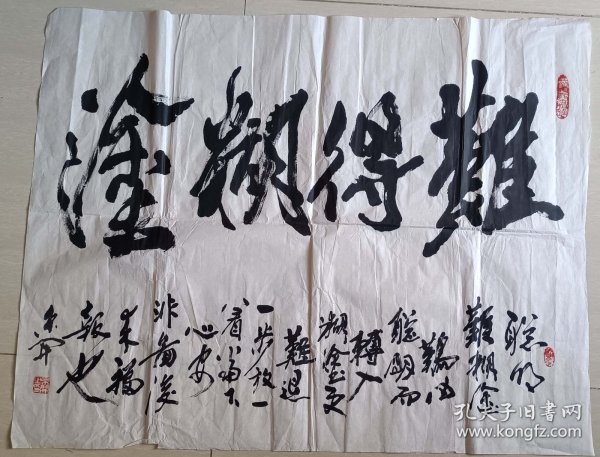 難得糊塗
聰明
難糊塗
難由
聰明而
轉入
糊塗更
難退
一步放一
着當下
心安
非圖後
來福
報也
孔夫子旧书网
www.kongfz.com